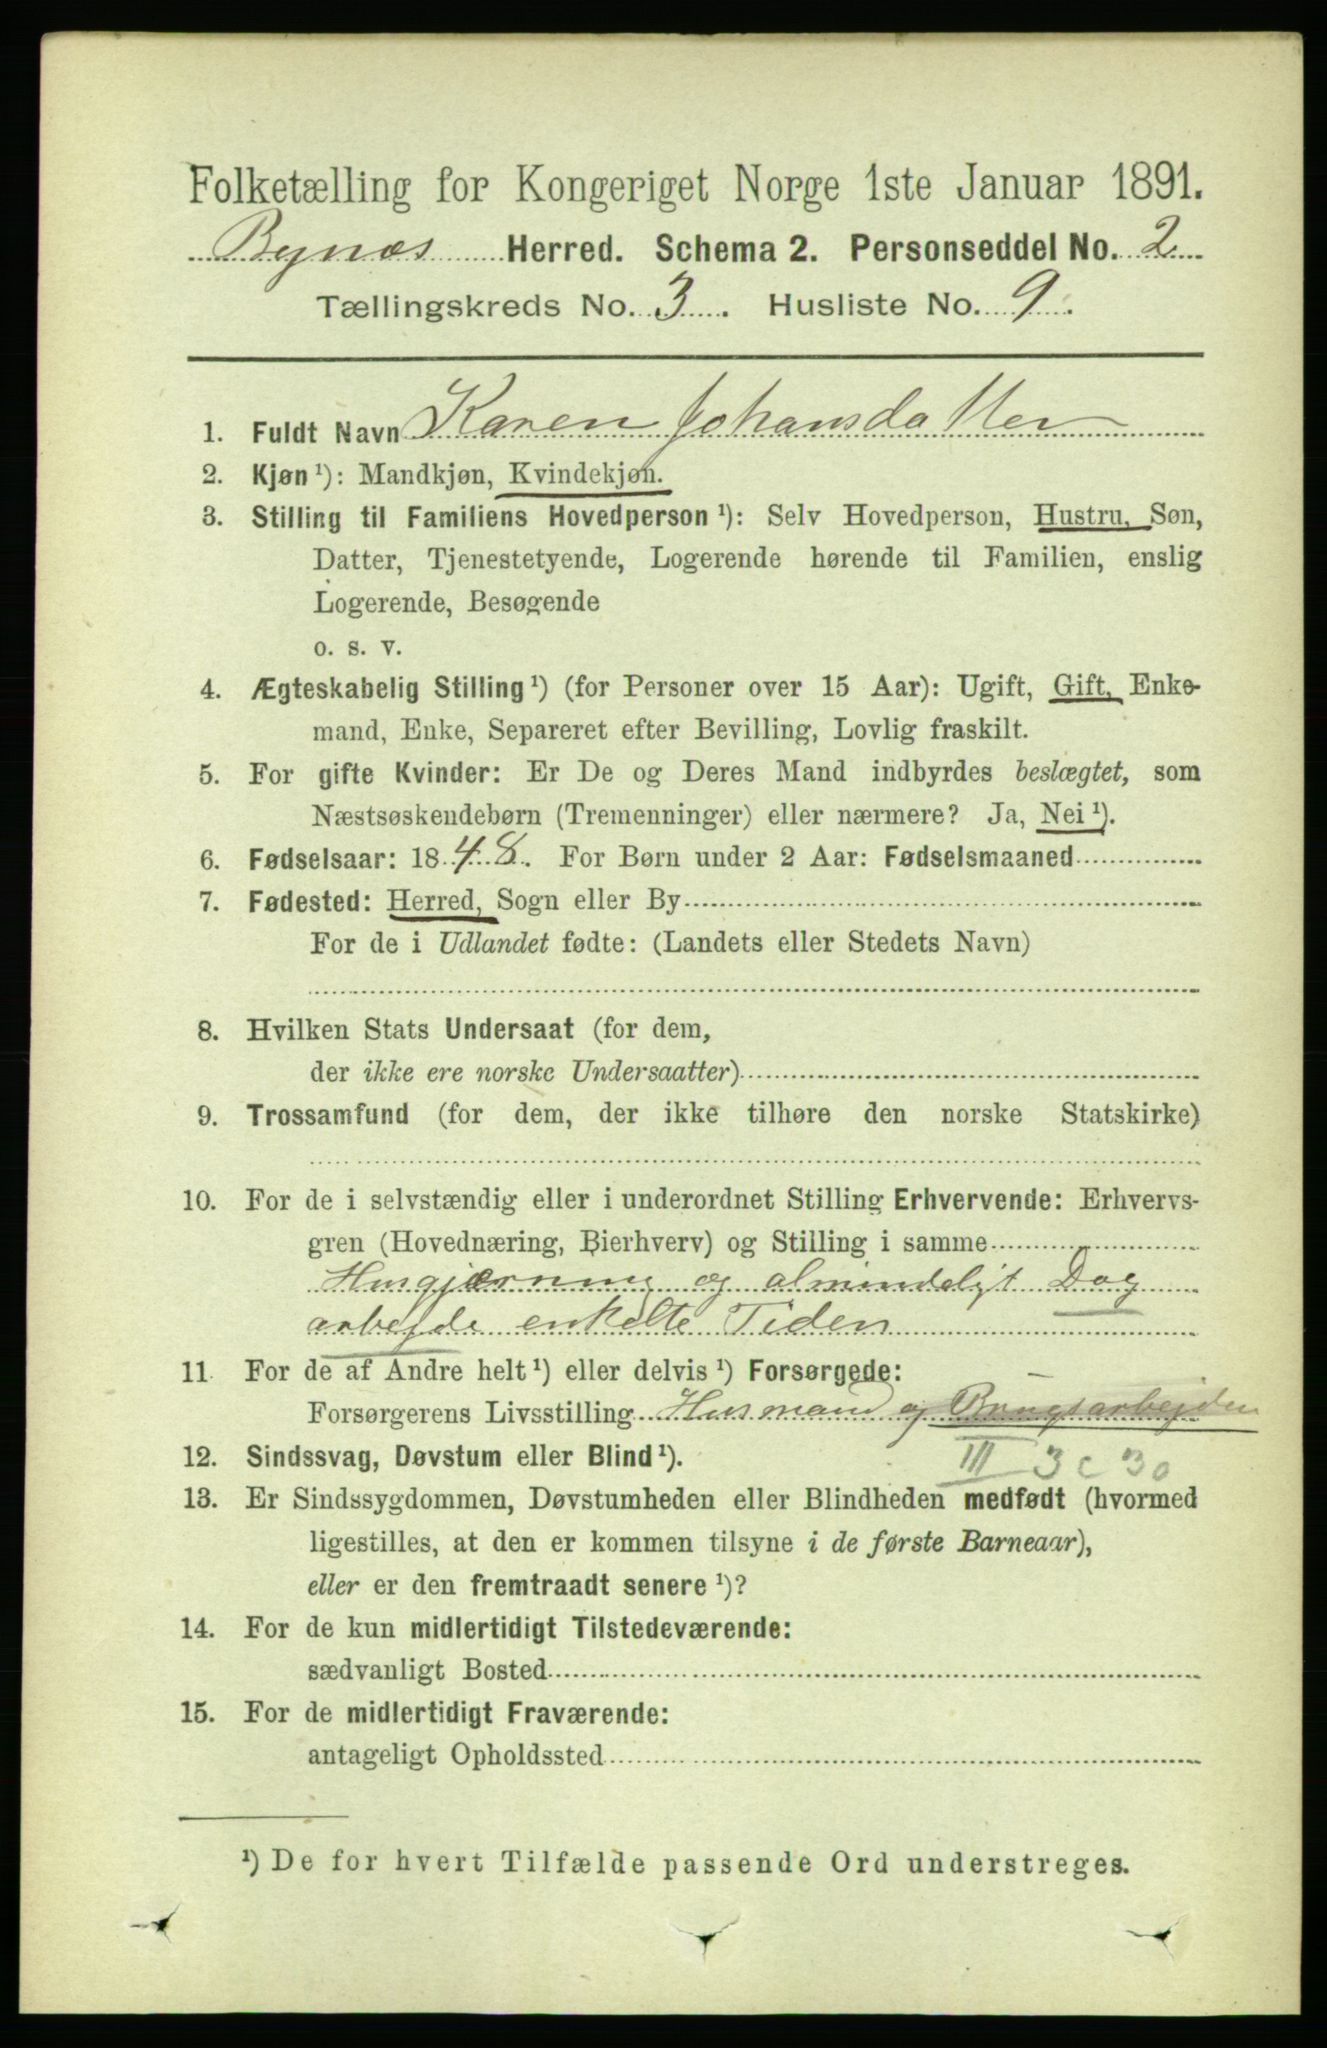 Folketælling for Kongeriget Norge 1ste Januar 1891.
Bynæs Herred. Schema 2. Personseddel No. 2
Tællingskreds No. 3. Husliste No. 9.
1. Fuldt Navn Karen Johansdatter
2. Kjøn¹): Mandkjøn, Kvindekjøn.
3. Stilling til Familiens Hovedperson¹): Selv Hovedperson, Hustru, Søn,
Datter, Tjenestetyende, Logerende hørende til Familien, enslig
Logerende, Besøgende
o. s. v.
4. Ægteskabelig Stilling¹) (for Personer over 15 Aar): Ugift, Gift, Enke-
mand, Enke, Separeret efter Bevilling, Lovlig fraskilt.
5. For gifte Kvinder: Er De og Deres Mand indbyrdes beslægtet, som
Næstsøskendebørn (Tremenninger) eller nærmere? Ja, Nei¹).
6. Fødselsaar: 1848. For Børn under 2 Aar: Fødselsmaaned
7. Fødested: Herred, Sogn eller By
For de i Udlandet fødte: (Landets eller Stedets Navn)
8. Hvilken Stats Undersaat (for dem,
der ikke ere norske Undersaatter)
9. Trossamfund (for dem, der ikke tilhøre den norske Statskirke)
10. For de i selvstændig eller i underordnet Stilling Erhvervende: Erhvervs-
gren (Hovednæring, Bierhverv) og Stilling i samme
Husgjærning og almindeligt Dag
arbejde enkelte Tiden
11. For de af Andre helt¹) eller delvis¹) Forsørgede:
Forsørgerens Livsstilling Husmand og Brugsarbejden
12. Sindssvag, Døvstum eller Blind¹).
III 3 c 30
13. Er Sindssygdommen, Døvstumheden eller Blindheden medfødt (hvormed
ligestilles, at den er kommen tilsyne i de første Barneaar),
eller er den fremtraadt senere¹)?
14. For de kun midlertidigt Tilstedeværende:
sædvanligt Bosted
15. For de midlertidigt Fraværende:
antageligt Opholdssted
¹) De for hvert Tilfælde passende Ord understreges.